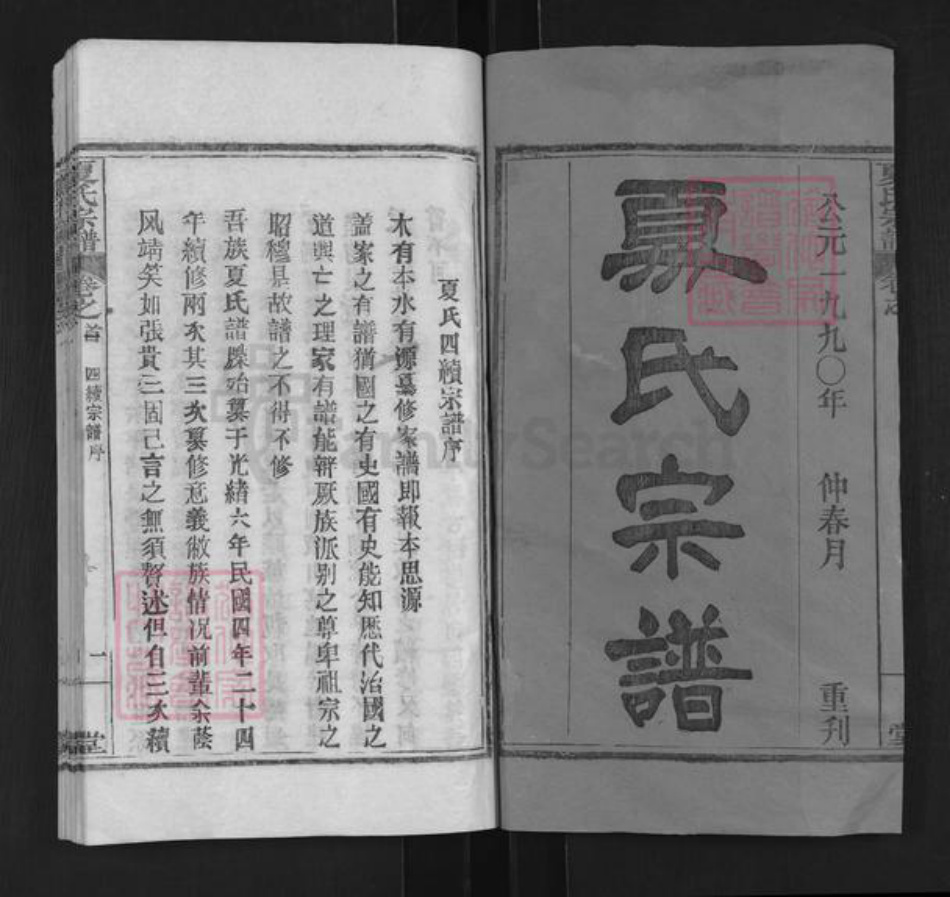 公元一九九〇年 仲春月 重刊
夏氏宗譜
夏氏四續宗譜序
木有本水有源纂修家譜即報本思源
蓋家之有譜猶國之有史國有史能知歷代治國之
道與亡之理家有譜能辨厥族派别之尊卑祖宗之
昭穆是故譜之不得不修
吾族夏氏譜牒始纂于光緒六年民國四年二十四
年續修兩次其三次纂修意義徹族情况前輩余蔭
风靖笑如張貴三固己言之無須贅述但自三次續
夏氏宗譜 卷之首 四續宗譜序 一 堂
FamilySearch